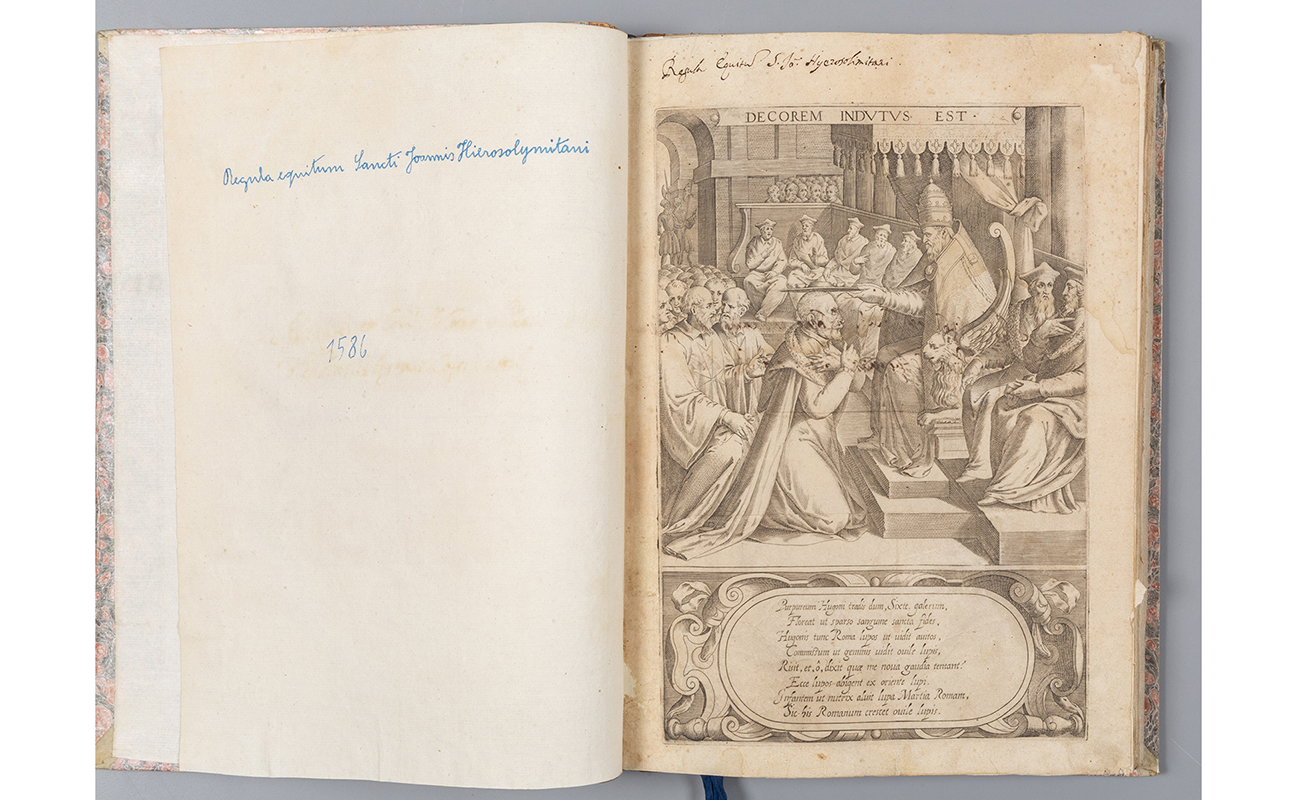 Regula equitum Sancti Joannis Hierosolymitani
1586
Regula Equitū S. Jo. Hyerosolimitani.
DECOREM INDVTVS EST ·
Purpureum Hugoni tradis dum, Sixte, galerum,
Floreat ut sparso sanguine sancta fides,
Hugonis tunc Roma lupos ut vidit avitos,
Commistum ut geminis vidit ovile lupis,
Risit, et, ô, dixit quæ me nova gaudia tentant!
Ecce lupos abigent ex oriente lupi.
Infantem ut nutrix aluit lupa Martia Romam,
Sic his Romanum crescet ovile lupis.